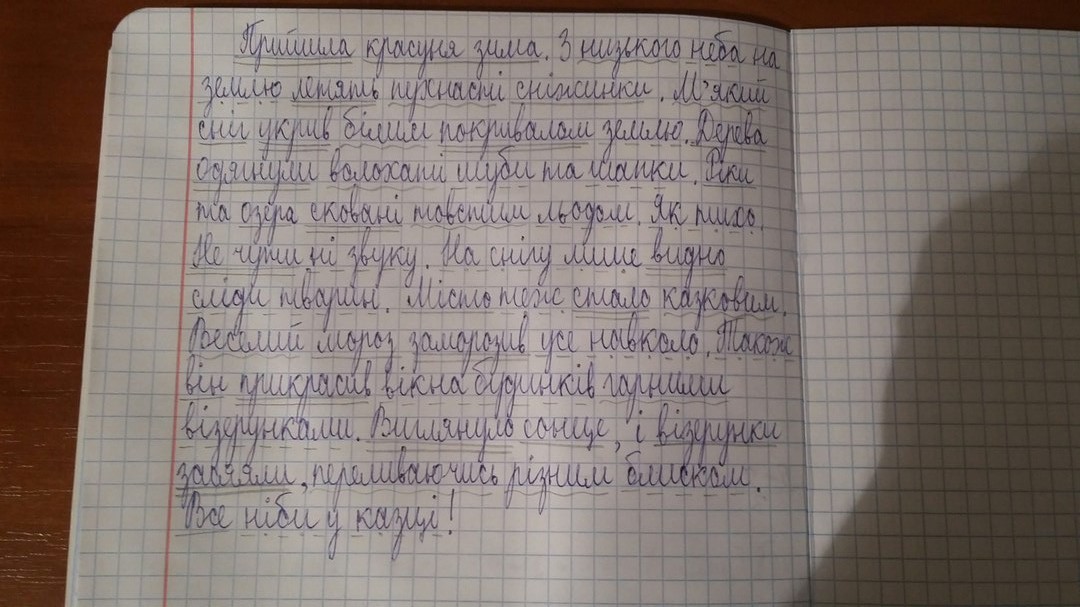 Прийшла красуня зима. З низького неба на
землю летять пухнасті сніжинки. М'який
сніг укрив білим покривалом землю. Дерева
одягнули волохаті шуби та шапки. Ріки
та озера сковані товстим льодом. Як тихо.
Не чути ні звуку. На снігу лише видно
сліди тварин. Місто теж стало казковим.
Веселий мороз заморозив усе навколо. Також
він прикрасив вікна будинків гарними
візерунками. Виглянуло сонце, і візерунки
засяяли, переливаючись різним блиском.
Все ніби у казці!